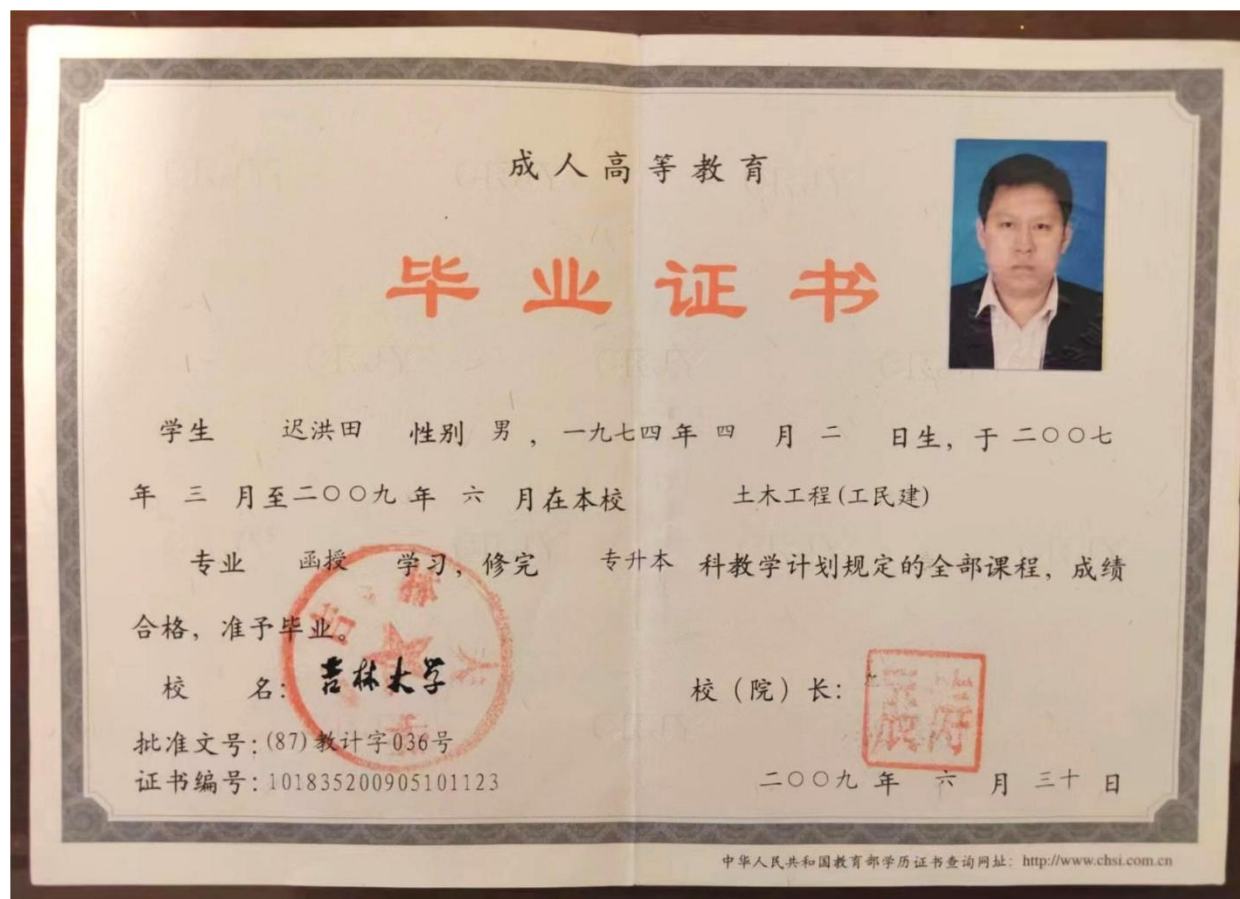 成人高等教育
毕业证书
学生 迟洪田 性别 男，一九七四年 四 月 二 日生，于二〇〇七
年 三 月至二〇〇九年 六 月在本校 土木工程(工民建)
专业 函授 学习，修完 专升本 科教学计划规定的全部课程，成绩
合格，准予毕业。
校 名：吉林大学
校（院）长：
批准文号：(87)教计字036号
证书编号：101835200905101123
二〇〇九 年 六 月 三十 日
中华人民共和国教育部学历证书查询网址：http://www.chsi.com.cn